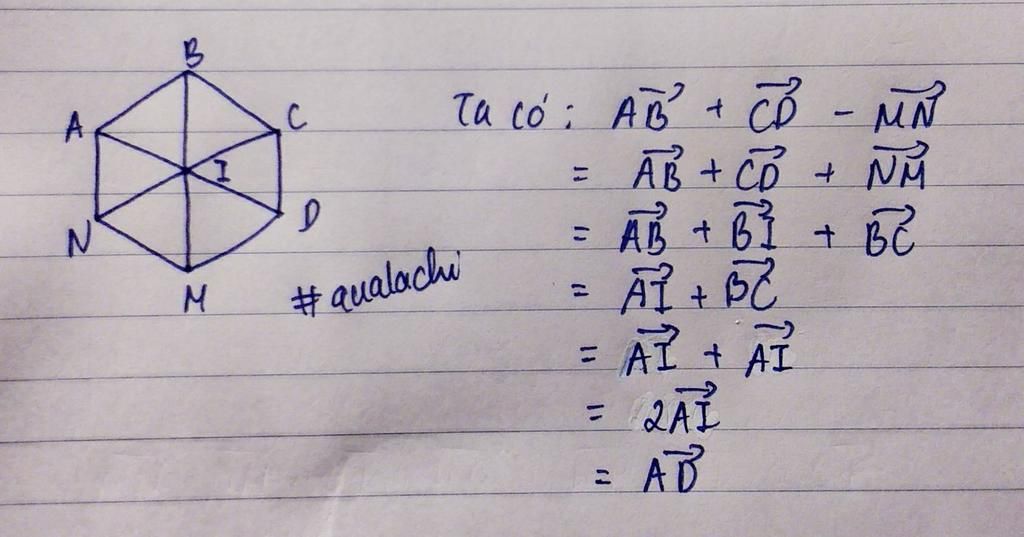 B
A
C
I
N
D
M
#aualachi
Ta có: AB→ + CD→ - MN→
= AB→ + CD→ + NM→
= AB→ + BI→ + BC→
= AI→ + BC→
= AI→ + AI→
= 2AI→
= AD→